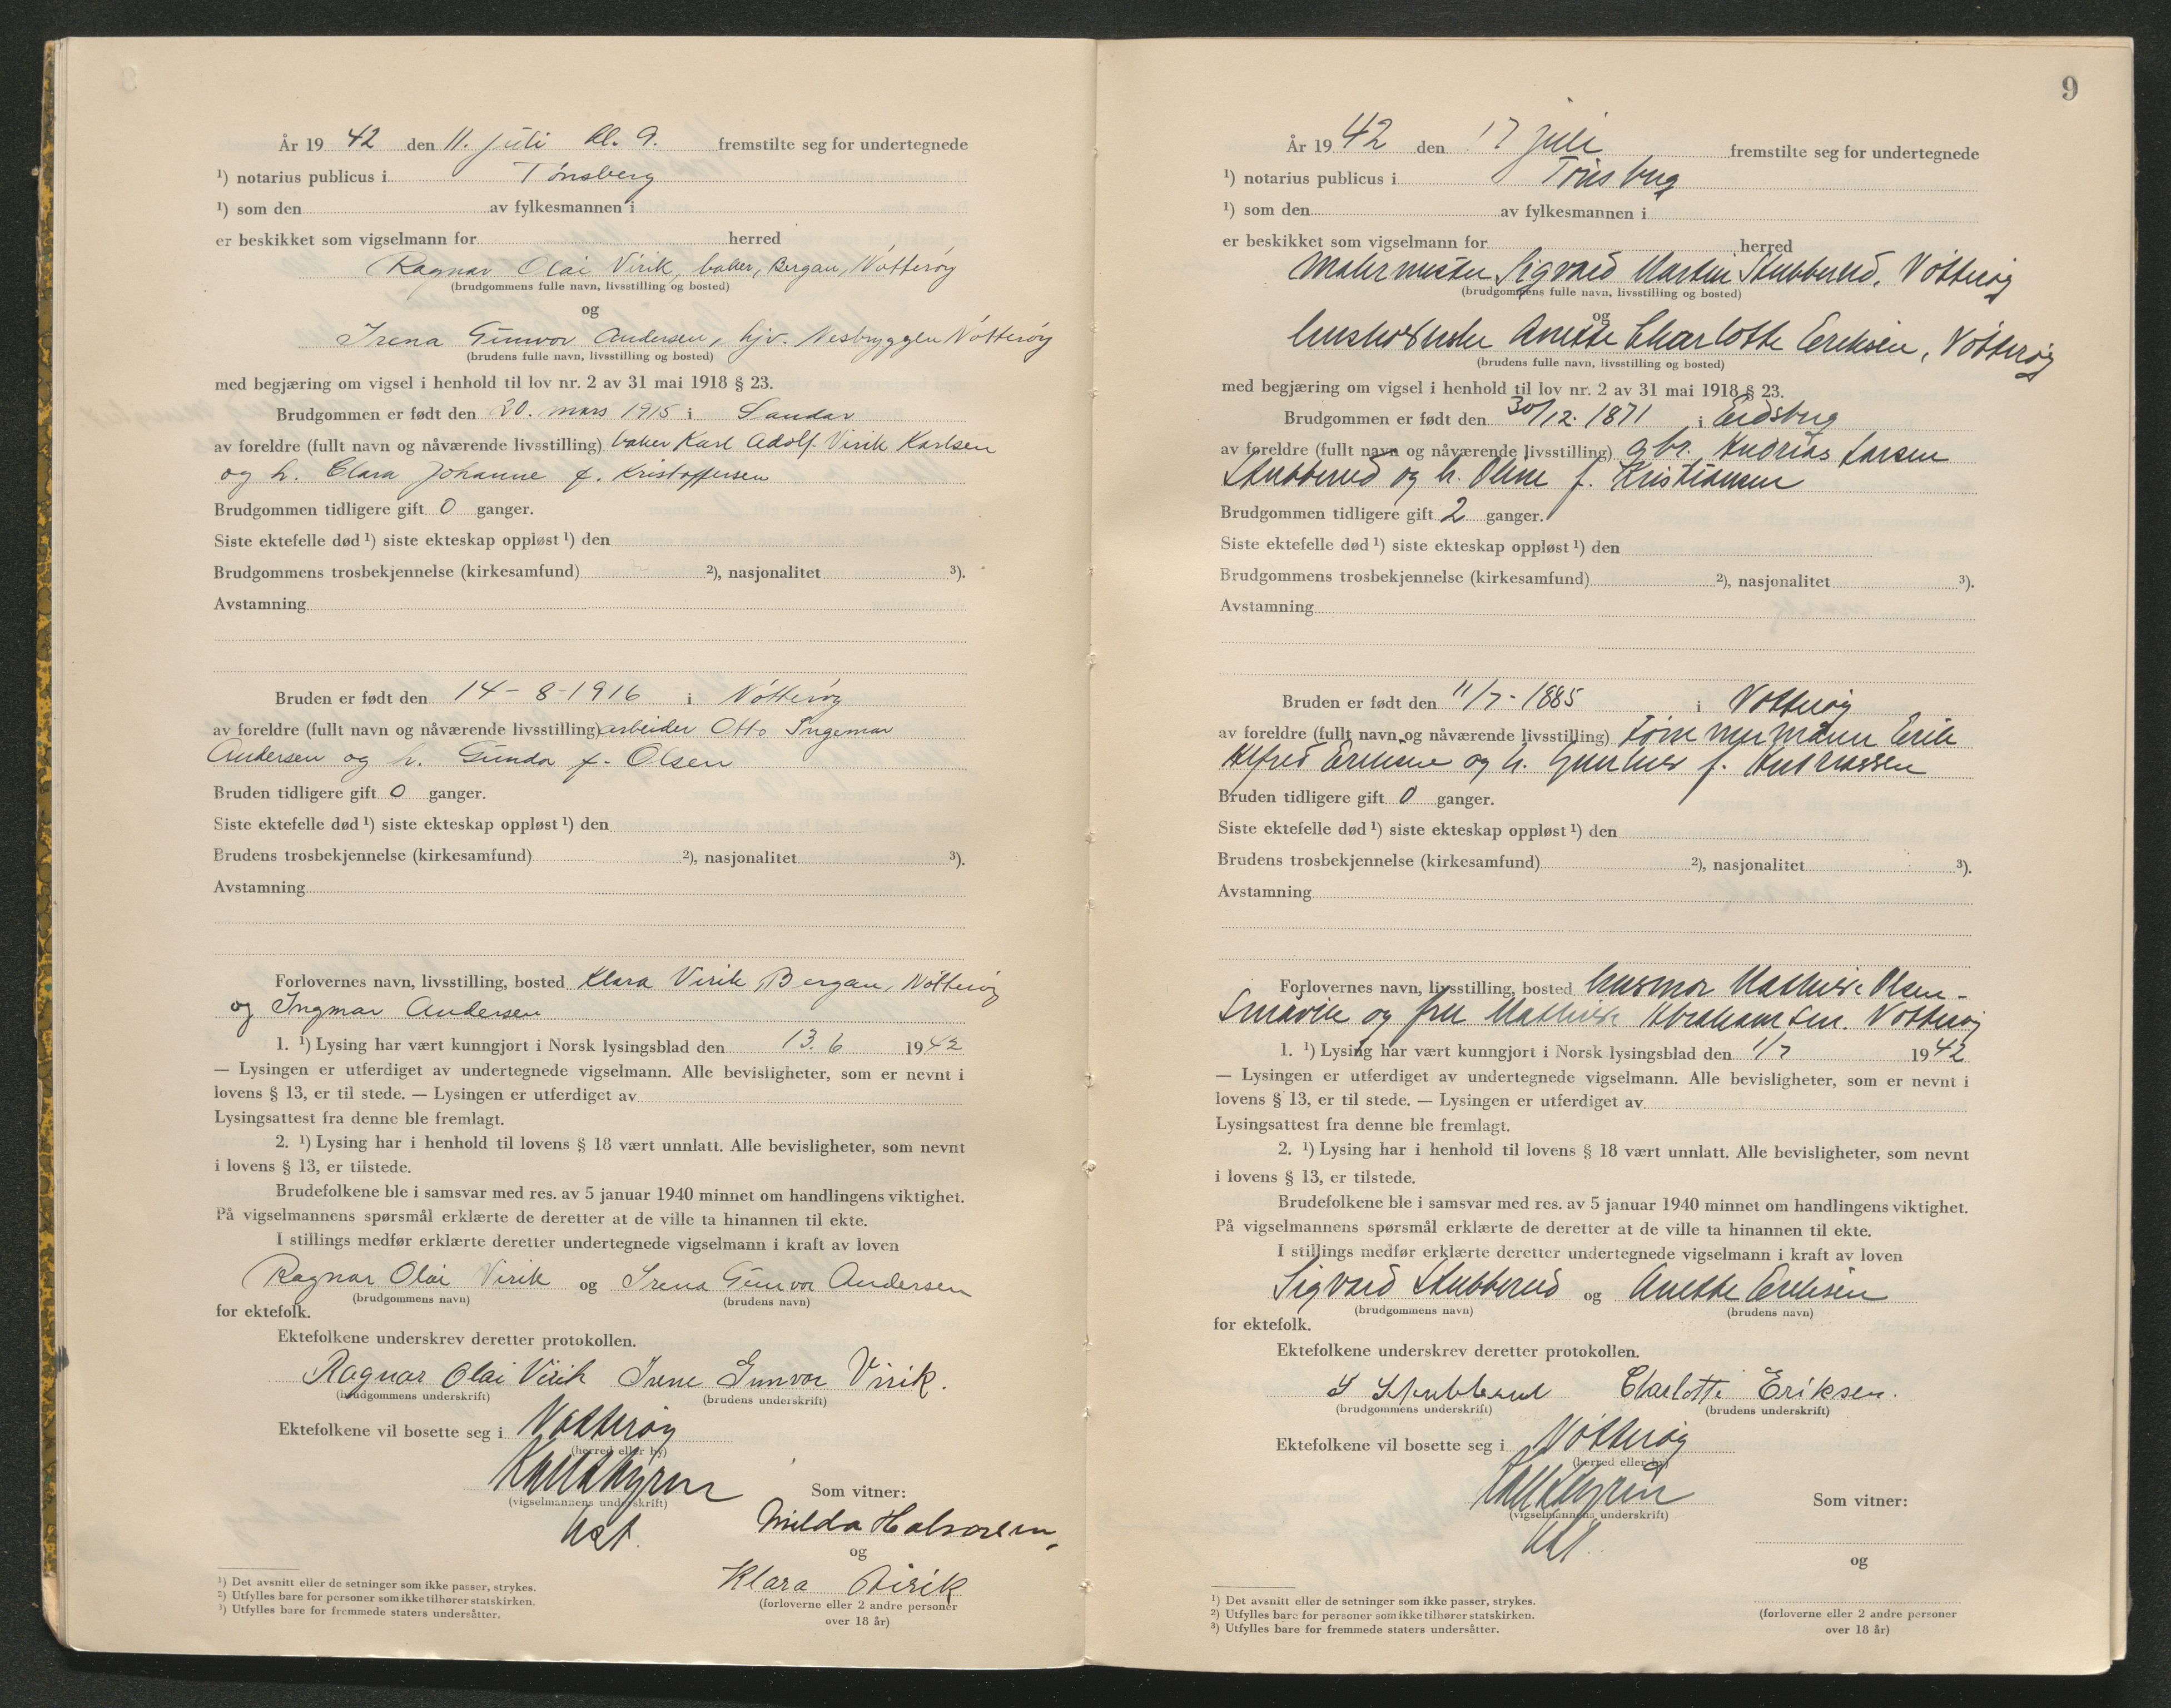 År 19 42 den 11. juli kl. 9. fremstilte seg for undertegnede
¹) notarius publicus i Tønsberg
¹) som den av fylkesmannen i
er beskikket som vigselmann for herred
Ragnar Olai Virik, baker, Bergan, Nøtterøy
(brudgommens fulle navn, livsstilling og bosted)
og
Irena Gunvor Andersen, hjv. Nesbryggen Nøtterøy
(brudens fulle navn, livsstilling og bosted)
med begjæring om vigsel i henhold til lov nr. 2 av 31 mai 1918 § 23.
Brudgommen er født den 20. mars 1915 i Sandar
av foreldre (fullt navn og nåværende livsstilling) baker Karl Adolf Virik Karlsen
og h. Clara Johanne f. Kristoffersen
Brudgommen tidligere gift 0 ganger.
Siste ektefelle død ¹) siste ekteskap oppløst ¹) den
Brudgommens trosbekjennelse (kirkesamfund) ²), nasjonalitet ³).
Avstamning
Bruden er født den 14-8-1916 i Nøtterøy
av foreldre (fullt navn og nåværende livsstilling) arbeider Otto Ingemar
Andersen og h. Gunda f. Olsen
Bruden tidligere gift 0 ganger.
Siste ektefelle død ¹) siste ekteskap oppløst ¹) den
Brudens trosbekjennelse (kirkesamfund) ²), nasjonalitet ³).
Avstamning
Forlovernes navn, livsstilling, bosted Klara Virik, Bergan, Nøtterøy
og Ingmar Andersen
1. ¹) Lysing har vært kunngjort i Norsk lysingsblad den 13.6 1942
— Lysingen er utferdiget av undertegnede vigselmann. Alle bevisligheter, som er nevnt i
lovens § 13, er til stede. — Lysingen er utferdiget av
Lysingsattest fra denne ble fremlagt.
2. ¹) Lysing har i henhold til lovens § 18 vært unnlatt. Alle bevisligheter, som nevnt
i lovens § 13, er tilstede.
Brudefolkene ble i samsvar med res. av 5 januar 1940 minnet om handlingens viktighet.
På vigselmannens spørsmål erklærte de deretter at de ville ta hinannen til ekte.
I stillings medfør erklærte deretter undertegnede vigselmann i kraft av loven
Ragnar Olai Virik og Irena Gunvor Andersen
(brudgommens navn) (brudens navn)
for ektefolk.
Ektefolkene underskrev deretter protokollen.
Ragnar Olai Virik Irene Gunvor Virik.
(brudgommens underskrift) (brudens underskrift)
Ektefolkene vil bosette seg i Nøtterøy
(herred eller by)
(vigselmannens underskrift)
Som vitner:
Milda Halvorsen,
og
Klara Virik
(forloverne eller 2 andre personer
over 18 år)
¹) Det avsnitt eller de setninger som ikke passer, strykes.
²) Utfylles bare for personer som ikke tilhører statskirken.
³) Utfylles bare for fremmede staters undersåtter.
9
År 19 42 den 17 juli fremstilte seg for undertegnede
¹) notarius publicus i Tønsberg
¹) som den av fylkesmannen i
er beskikket som vigselmann for herred
Malermester Sigvard Martin Stubberud, Nøtterøy
(brudgommens fulle navn, livsstilling og bosted)
og
Anette Charlotte Eriksen, Nøtterøy
(brudens fulle navn, livsstilling og bosted)
med begjæring om vigsel i henhold til lov nr. 2 av 31 mai 1918 § 23.
Brudgommen er født den 30/12. 1871 i Eidsberg
av foreldre (fullt navn og nåværende livsstilling) gbr. Andreas Larsen
Stubberud og h. Oline f. Kristiansen
Brudgommen tidligere gift 2 ganger.
Siste ektefelle død ¹) siste ekteskap oppløst ¹) den
Brudgommens trosbekjennelse (kirkesamfund) ²), nasjonalitet ³).
Avstamning
Bruden er født den 11/7-1885 i Nøtterøy
av foreldre (fullt navn og nåværende livsstilling) tømmermann Erik
Alfred Eriksen og h. f. Andreassen
Bruden tidligere gift 0 ganger.
Siste ektefelle død ¹) siste ekteskap oppløst ¹) den
Brudens trosbekjennelse (kirkesamfund) ²), nasjonalitet ³).
Avstamning
Forlovernes navn, livsstilling, bosted husmor Mathilde Olsen-
Smidvik og fru Mathilde Abrahamsen. Nøtterøy
1. ¹) Lysing har vært kunngjort i Norsk lysingsblad den 1/7 1942
— Lysingen er utferdiget av undertegnede vigselmann. Alle bevisligheter, som er nevnt i
lovens § 13, er til stede. — Lysingen er utferdiget av
Lysingsattest fra denne ble fremlagt.
2. ¹) Lysing har i henhold til lovens § 18 vært unnlatt. Alle bevisligheter, som nevnt
i lovens § 13, er tilstede.
Brudefolkene ble i samsvar med res. av 5 januar 1940 minnet om handlingens viktighet.
På vigselmannens spørsmål erklærte de deretter at de ville ta hinannen til ekte.
I stillings medfør erklærte deretter undertegnede vigselmann i kraft av loven
Sigvard Stubberud og Anette Eriksen
(brudgommens navn) (brudens navn)
for ektefolk.
Ektefolkene underskrev deretter protokollen.
S Stubberud Charlotte Eriksen.
(brudgommens underskrift) (brudens underskrift)
Ektefolkene vil bosette seg i Nøtterøy
(herred eller by)
(vigselmannens underskrift)
Som vitner:
og
(forloverne eller 2 andre personer
over 18 år)
¹) Det avsnitt eller de setninger som ikke passer, strykes.
²) Utfylles bare for personer som ikke tilhører statskirken.
³) Utfylles bare for fremmede staters undersåtter.